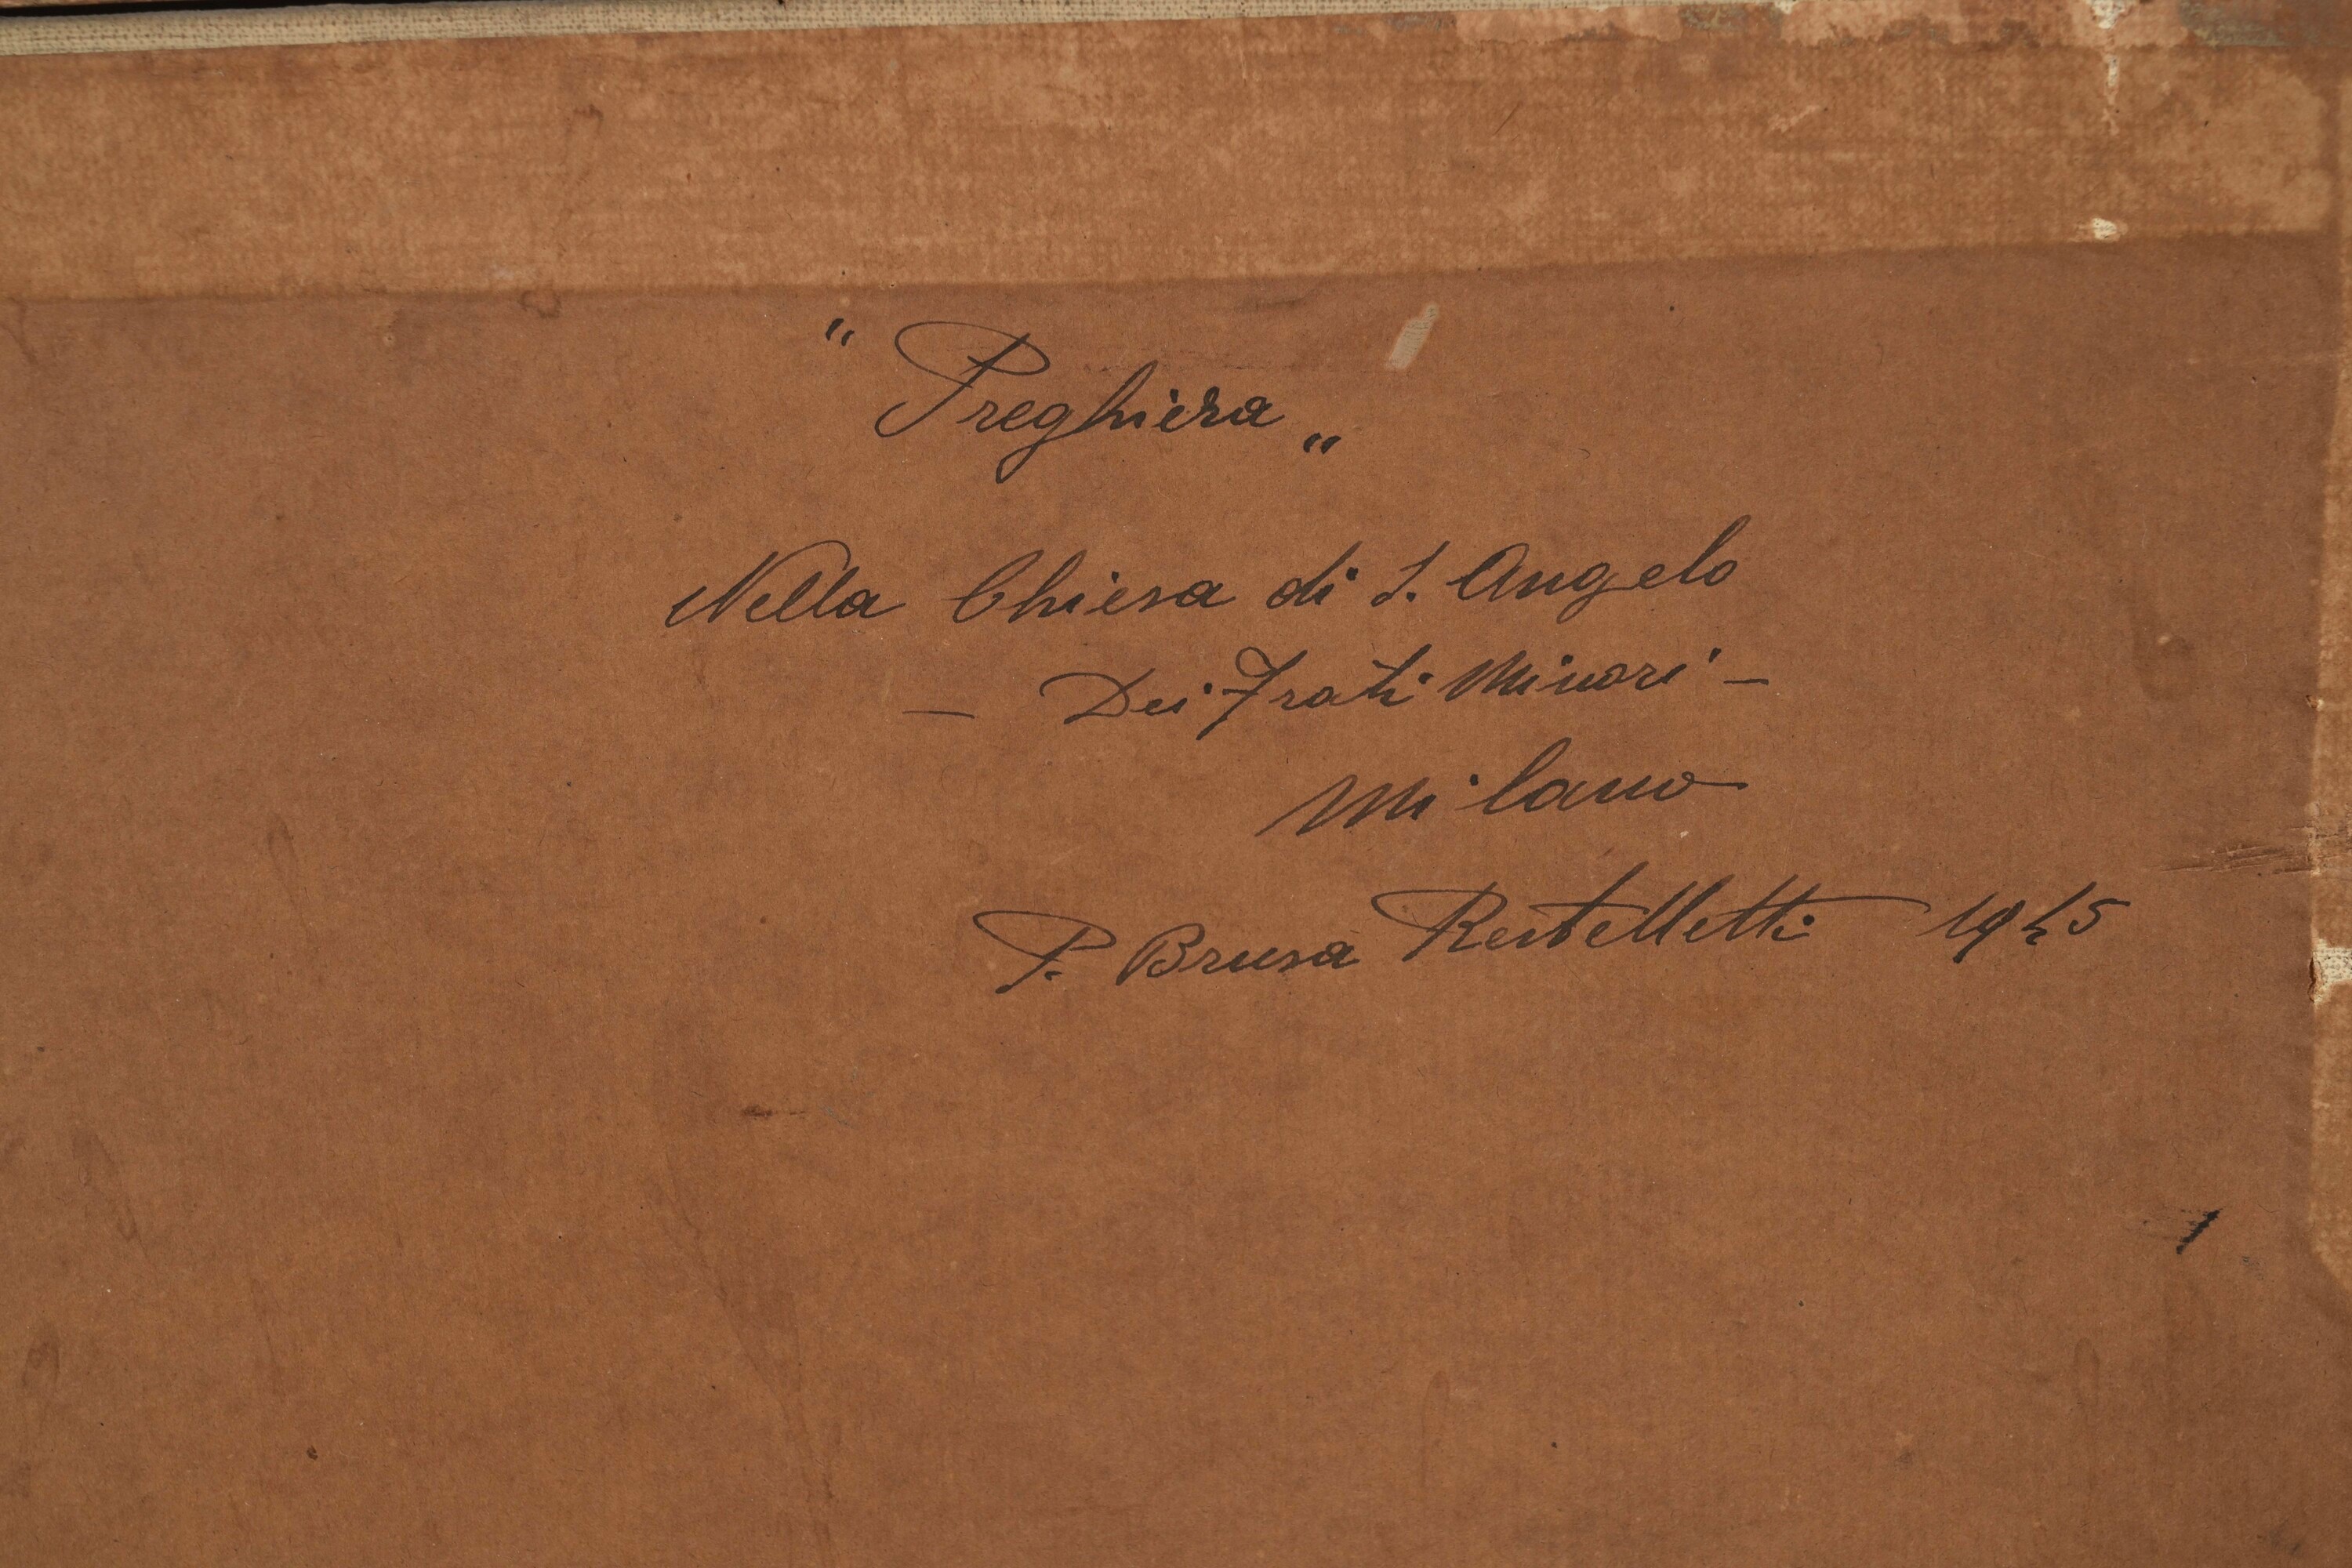 "Preghiera„
Nella Chiesa di S. Angelo
— Dei Frati Minori —
Milano
P. Brusa Restelletti 1945